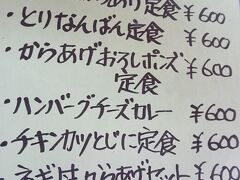 定食 ¥600
・とりなんばん定食 ¥600
・からあげおろしポンズ
定食 ¥600
・ハンバーグチーズカレー ¥600
・チキンカツとじに定食 ¥600
からあげセット ¥600